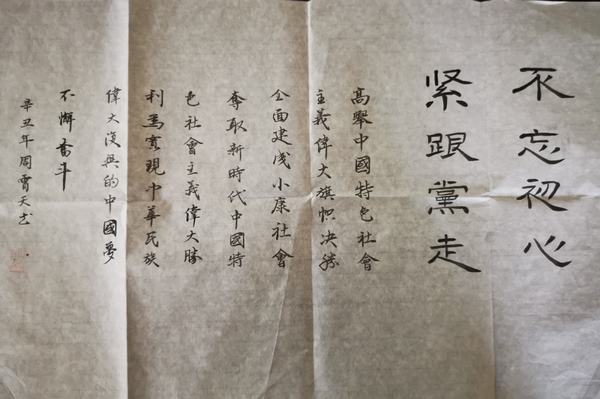 不忘初心
紧跟黨走
高舉中國特色社會
主義偉大旗帜决胜
全面建成小康社會
奪取新時代中國特
色社會主義偉大勝
利為實現中華民族
偉大復興的中國夢
不懈奋斗
辛丑年周霄天书